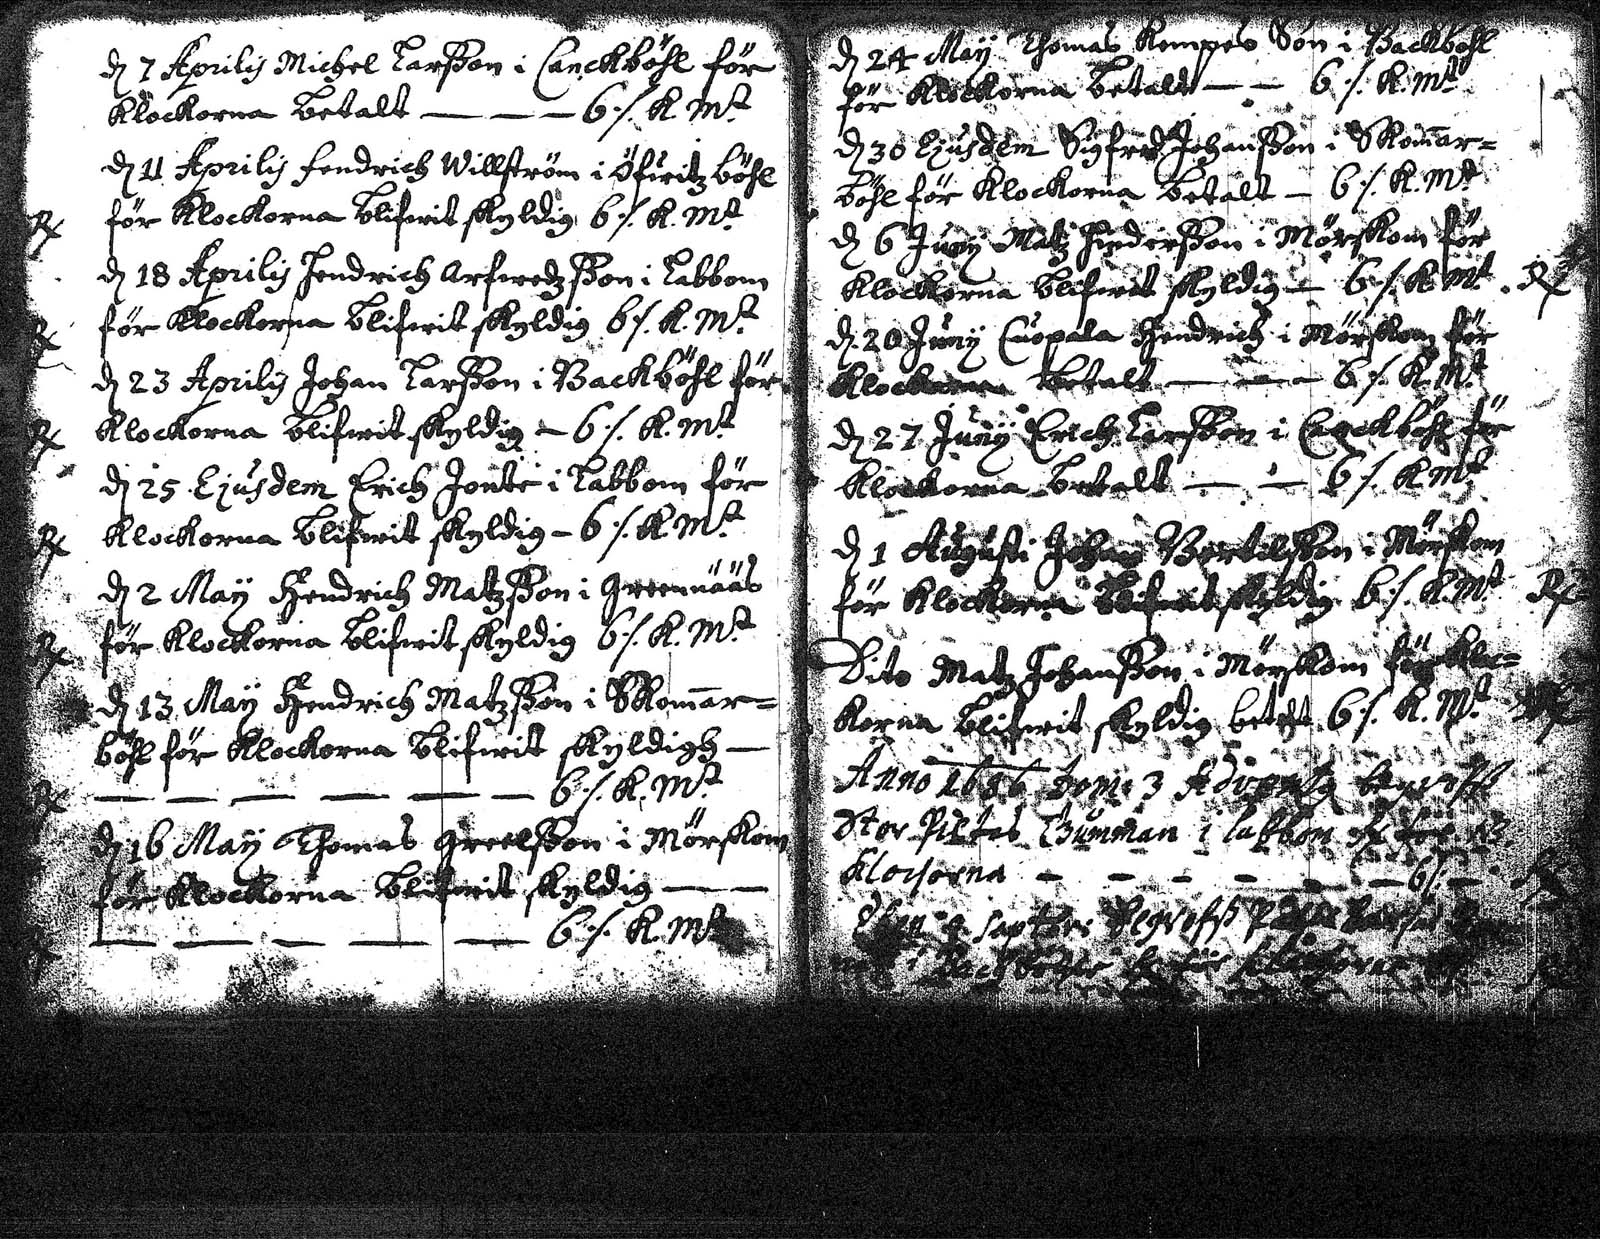 d 7 Aprilis Michel Larsson i Canckböhl för
Klockorna betalt — — — 6 :/. K. Mt
d 11 Aprilis fendrich Willström i Öfwitzböhl
Rx för Klockorna blifwit skyldig 6 :/. K. Mt
d 18 Aprilis Hendrich Arfwedzsson i Labbom
Rx för Klockorna blifwit skyldig 6 :/. K. Mt
d 23 Aprilis Johan Larsson i Backböhl för
Rx Klockorna blifwit skyldig — 6 :/. K. Mt
d 25 Ejusdem Erich Jonte i Labbom för
Rx Klockorna blifwit skyldig — 6 :/. K. Mt
d 2 May Hendrich Matzsson i Greennääs
Rx för Klockorna blifwit skyldig 6 :/. K. Mt
d 13 May Hendrich Matzsson i Skom̄ar=
böhl för Klockorna blifwit skyldigh —
Rx — — — — — — 6 :/. K. Mt
d 16 May Thomas Greelsson i Mörskom
för Klockorna blifwit skyldig — —
— — — — — 6 :/. K. Mt
d 24 May Thomas Kempes Son i Backböhl
för Klockorna betalt — — 6 :/. K. Mt
d 30 Ejusdem Sigfred Johansson i Skom̄ar=
böhl för Klockorna betalt — 6 :/. K. Mt
d 6 Juny Matz Hindersson i Mörskom för
Klockorna blifwit skyldig — 6 :/. K. Mt Rx
d 20 Juny Cuopala Hendrich i Mörskom för
Klockorna betalt — — — 6 :/. K. Mt
d 27 Juny Erich Larsson i Canckböhl för
Klockorna betalt — — 6 :/. K. Mt
d 1 Augusti Johan Bertilsson i Mörskom
för Klockorna blifwit skyldig 6 :/. K. Mt Rx
Dito Matz Johansson i Mörskom för Kloc=
korna blifwit skyldig betalt 6 :/. K. Mt
Anno 1686 Dom: 3 Advents begroffs
Stor Gumman i labbom för
Klockorna — — — — — — 6 :/. —
septbr: Begroffs
i Backböhle för klåckorna